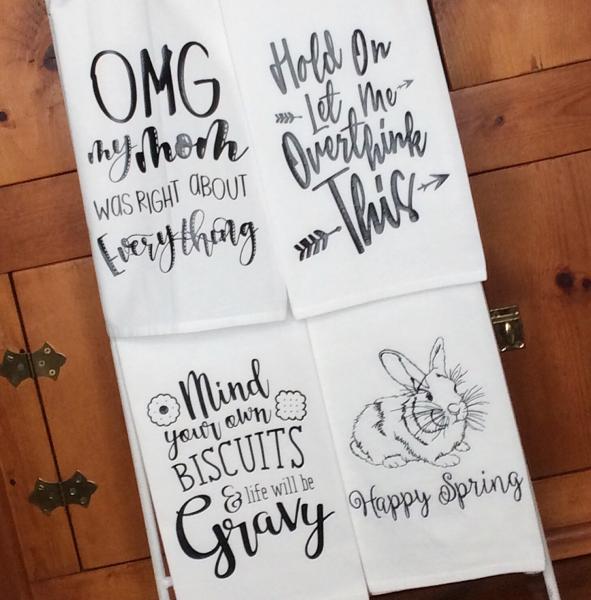 OMG
my mom
was RIGHT aBOUT
Everything
Hold On
Let Me
Overthink
This
Mind
your own
BISCUITS
& life will be
Gravy
Happy Spring